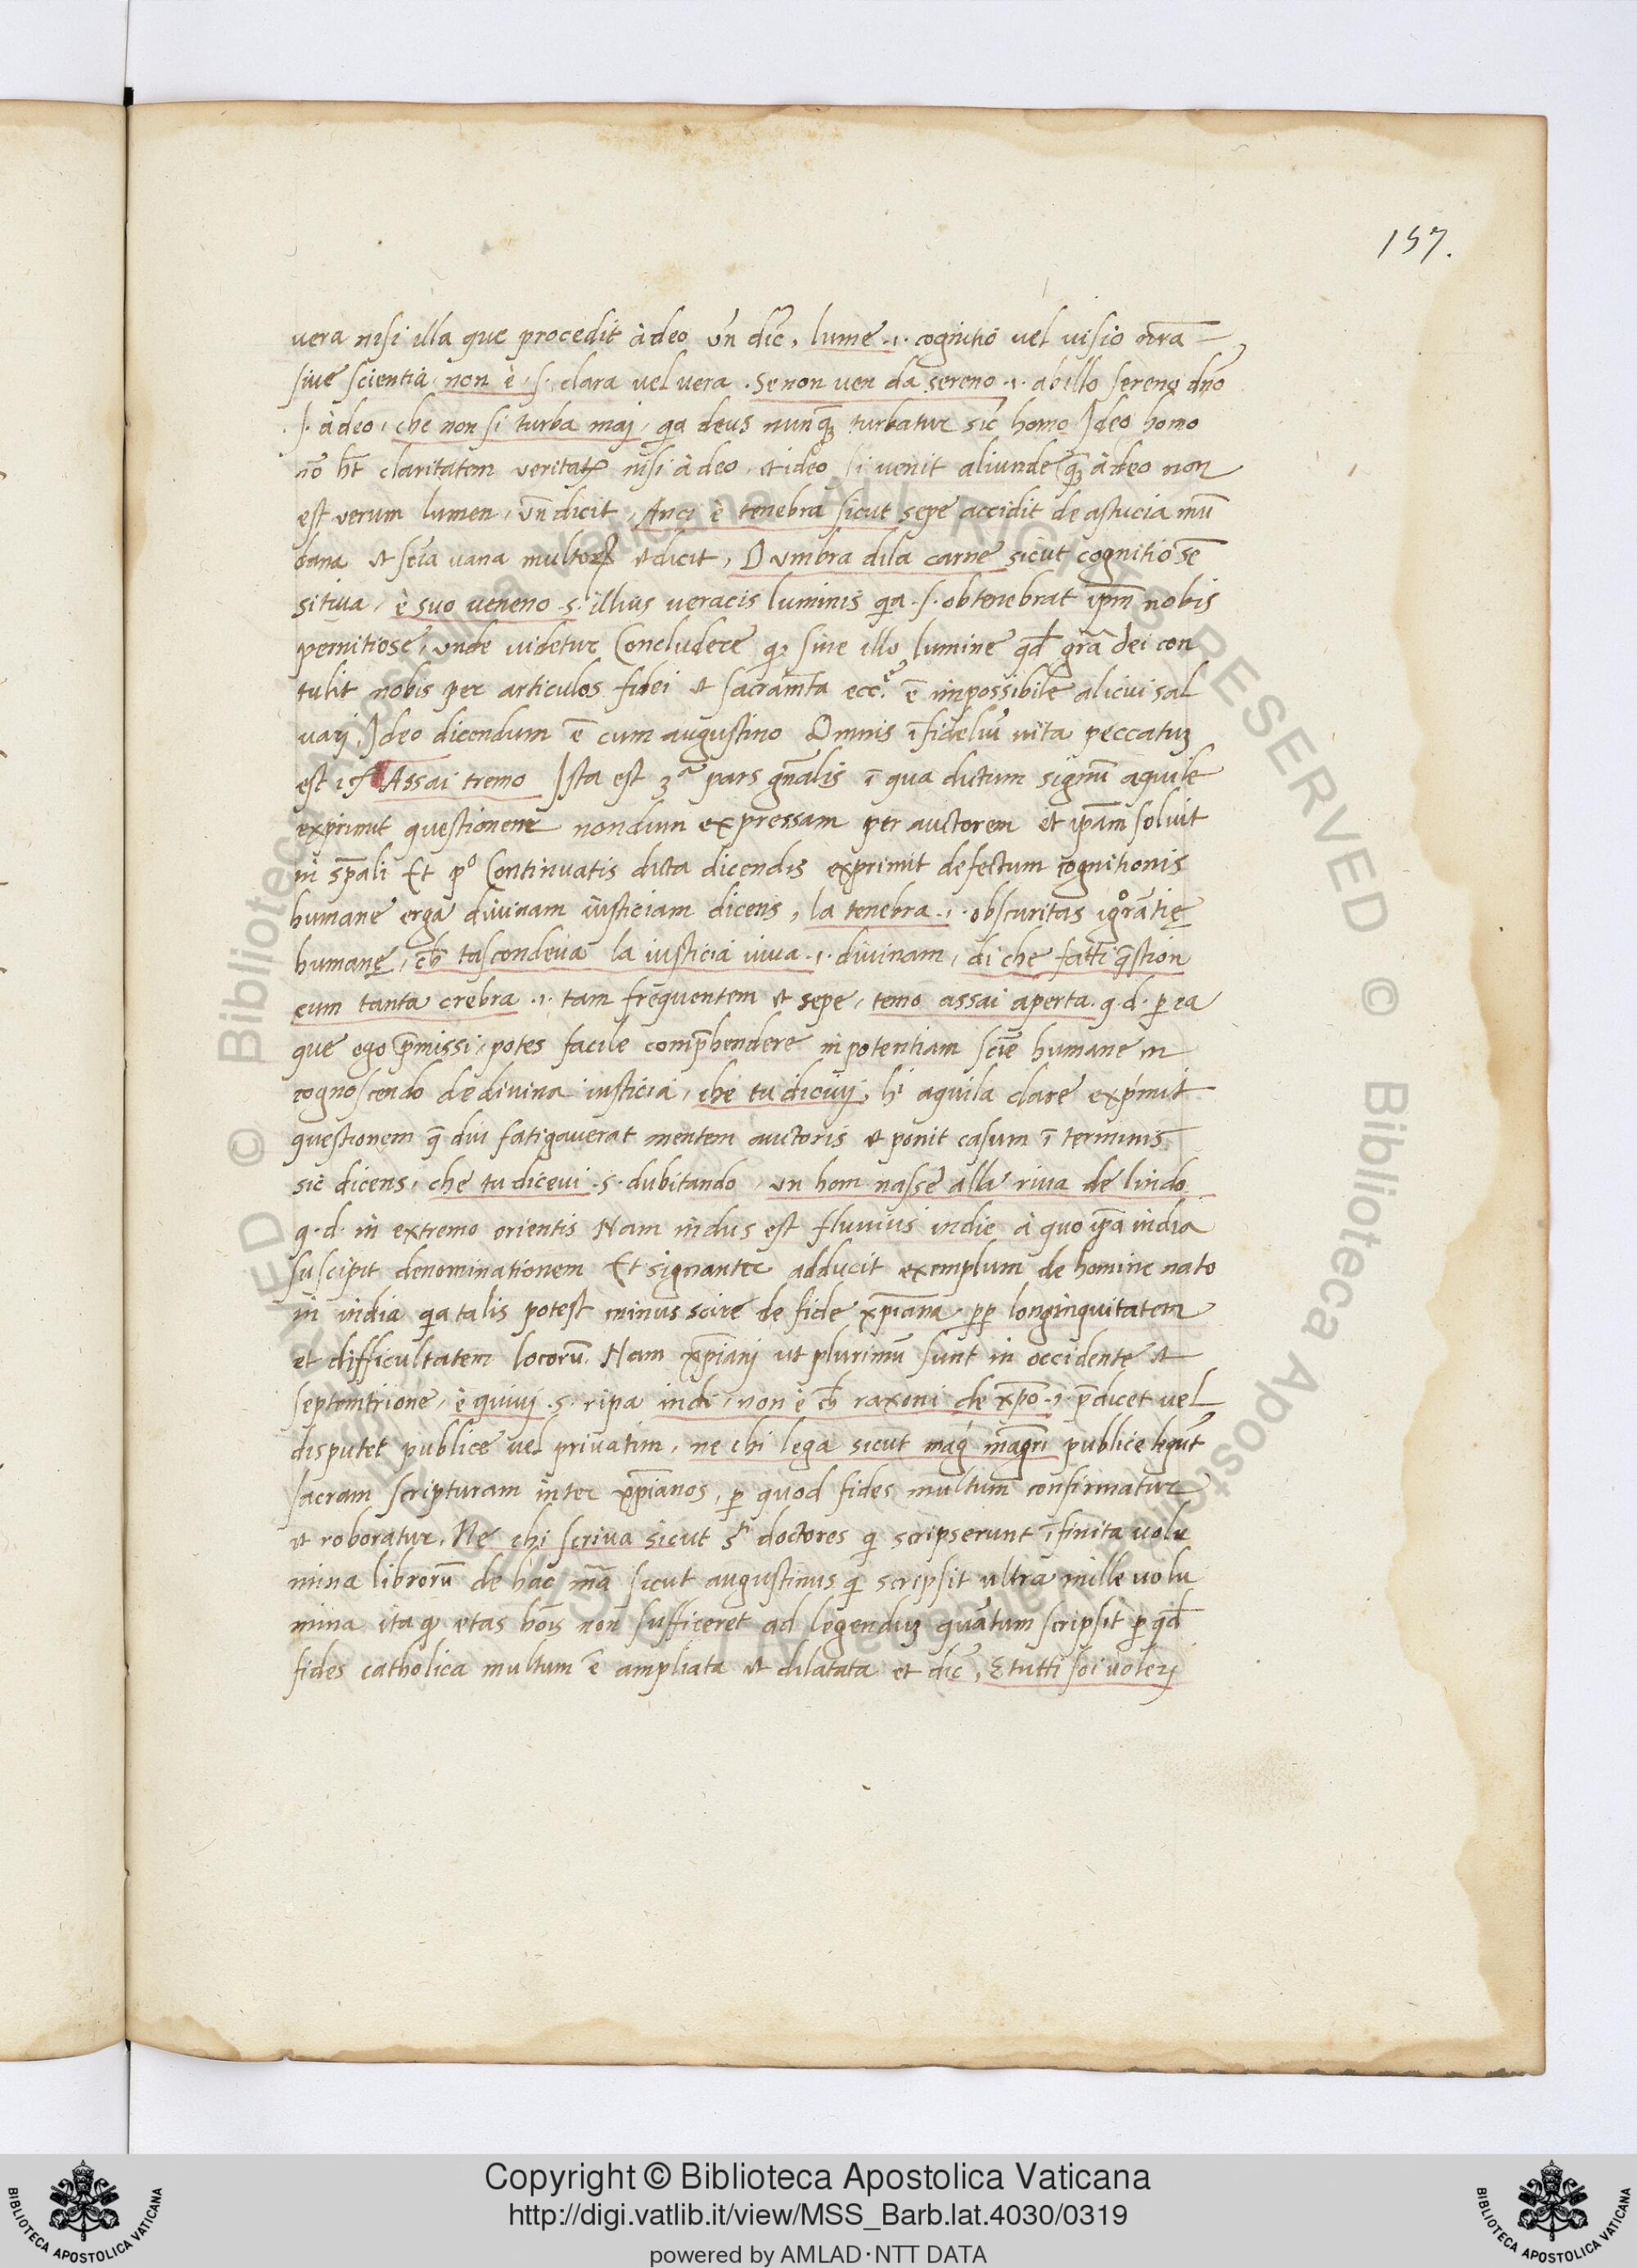 157.
vera nisi illa que procedit à deo vn̄ dic̄, lume .i. cognitio vel visio nr̄a
sive scientia non è .s. clara vel vera . Se non ven da sereno .i. ab illo sereno dn̄o
.s. à deo, che non si turba maj, qa deus nunq̃ turbatur sic̄ homo Ideo homo
nō ht̄ claritatem veritatꝭ nisi à deo, et ideo si venit aliunde q̃ à deo non
est verum lumen, vn̄ dicit, Anci è tenebra sicut sepe accidit de astucia mū
dana et sc̄ia vana multoꝝ et dicit, O vmbra dila carne sicut cognitio sē
sitiva, è suo veneno .s. illius veracis luminis qa .s. obtenebrat ip̄m nobis
pernitiose, vnde videtur Concludere q. sine illo lumine qđ gr̄a dei con
tulit nobis per articulos fidei et sacram̄ta ecc.ᵉ ē impossibile alicui sal
varj, Ideo dicendum ē cum augustino Omnis īfideliū vita peccatuꝫ
est Assai tremo Ista est 3.ᵃ pars gn̄alis ī qua dictum signū aquile
exprimit questionem nondum expressam per auctorem et ip̄am soluit
in sp̄ali Et p.º Continuatis dicta dicendis exprimit defectum cognitionis
humane erga divinam iusticiam dicens, la tenebra .i. obscuritas igorātię
humanę, ch̄ tascondeva la iusticia viva .i. divinam, di che fatti q̄stion
cum tanta crebra .i. tam frequentem et sepe, temo assai aperta . q . d . ꝑ ea
que ego p̄missi, potes facile comp̄hendere inpotentiam scīe humane in
cognoscendo de divina iusticia, che tu dicivj, hⁱ aquila clare exp'mit
questionem q̄ diu fatigaverat mentem auctoris et ponit casum ī terminis
sic dicens, che tu dicevi .s. dubitando, un hom nasse alla riva de lindo
q . d . in extremo orientis Nam indus est fluvius indie à quo ip̄a india
suscipit denominationem Et signanter adducit exemplum de homine nato
in india qa talis potest minus scire de fide xp̄iana, ꝓp longinquitatem
et difficultatem locorū. Nam xp̄ianj ut plurimū sunt in occidente et
septemtrione, è quivj .s. ripa indi, non è ch̄ raxoni de xp̄o .i. p̄dicet vel
disputet publice vel privatim, ne chi lega sicut mag māgri publice legūt
sacram scripturam inter xp̄ianos, ꝑ quod fides multum confirmatur
et roboratur. Ne chi scriva sicut sᵗⁱ doctores qi scripserunt īfinita volu
mina librorū de hac mā sicut augustinus qi scripsit ultra mille volu
mina ita q etas hoīs non sufficeret ad legenduꝫ quantum scripsit ꝑ qđ
fides catholica multum ē ampliata et dilatata et dic̄, E tutti soi volerj
Copyright © Biblioteca Apostolica Vaticana
http://digi.vatlib.it/view/MSS_Barb.lat.4030/0319
powered by AMLAD·NTT DATA